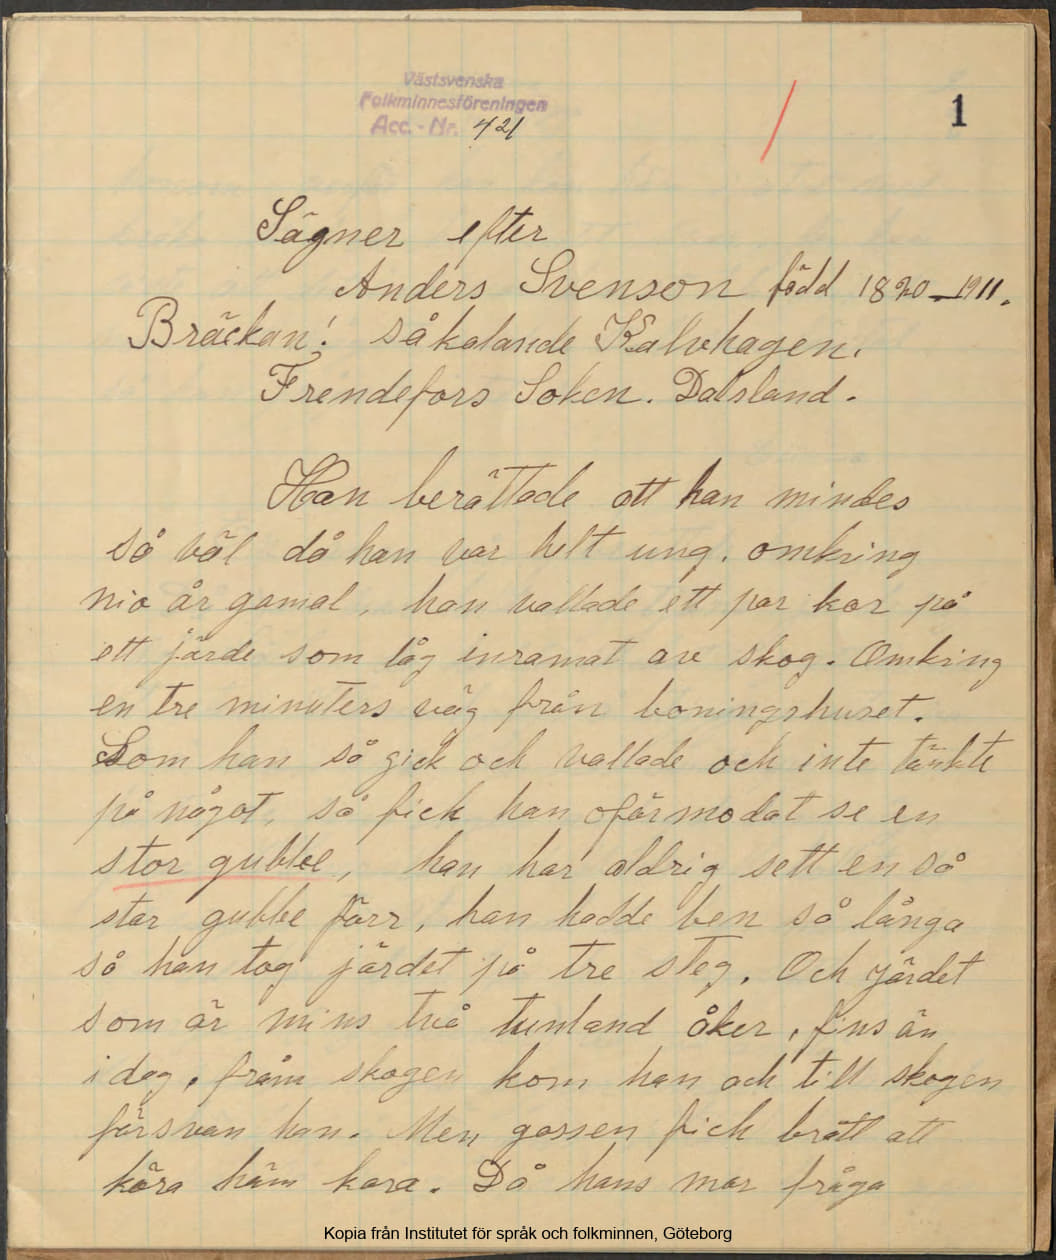 Västsvenska
Folkminnesföreningen
Acc. - Nr. 421
1
Sägner efter
Anders Svenson född 1820–1911.
Bräckan! såkalande Kalvhagen.
Frendefors Soken. Dalsland.
Han berättade att han mindes
så väl då han var helt ung. omkring
nio år gamal, han vallade ett par kor på
ett järde som låg inramat av skog. Omkring
en tre minuters väg från boningshuset.
Som han så gick och vallade och inte tänkte
på något, så fick han oförmodat se en
stor gubbe, han har aldrig sett en så
stor gubbe förr, han hadde ben så långa
så han tog järdet på tre steg. Och järdet
som är mins två tunland åker, fins än
i dag. från skogen kom han och till skogen
försvan han. Men gossen fick brått att
köra häm kora. Då hans mor fråga
Kopia från Institutet för språk och folkminnen, Göteborg